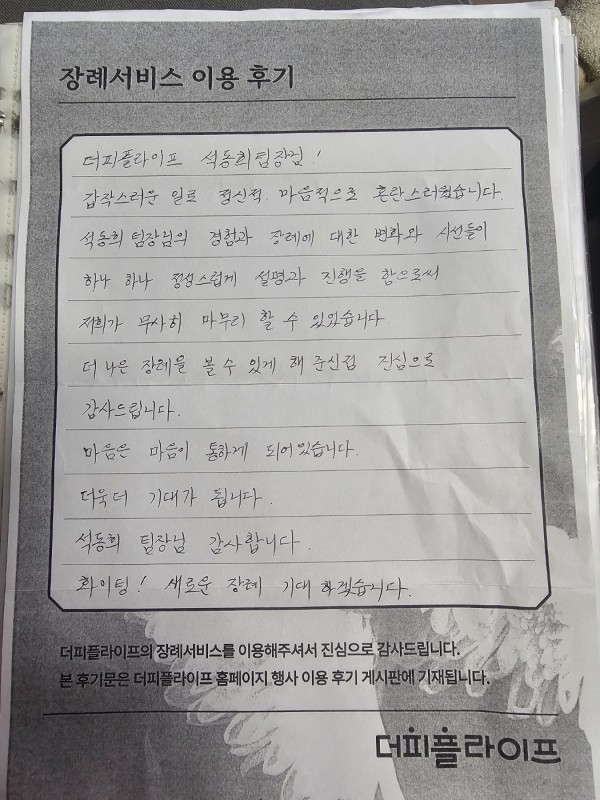 장례서비스 이용 후기
더피플라이프 석동희팀장님!
갑작스러운 일로 정신적. 마음적으로 혼란스러웠습니다.
석동희팀장님의 경험과 장례에 대한 변화와 시선들이
하나 하나 정성스럽게 설명과 진행을 함으로써
저희가 무사히 마무리 할 수 있었습니다
더 나은 장례를 볼 수 있게 해 주신점 진심으로
감사드립니다.
마음은 마음이 통하게 되어있습니다.
더욱더 기대가 됩니다.
석동희 팀장님 감사합니다.
화이팅! 새로운 장례 기대 하겠습니다.
더피플라이프의 장례서비스를 이용해주셔서 진심으로 감사드립니다.
본 후기문은 더피플라이프 홈페이지 행사 이용 후기 게시판에 기재됩니다.
더피플라이프